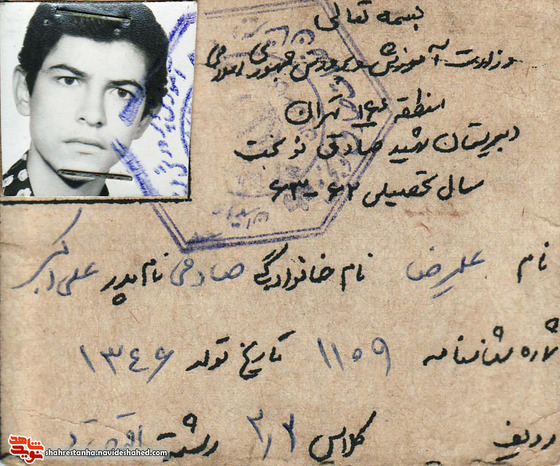 بسمه تعالی
وزارت آموزش و پرورش جمهوری اسلامی
منطقه ۱۶ تهران
دبیرستان شهید صادق نوبخت
سال تحصیلی ۶۲-۶۳
نام علیرضا نام خانوادگی صادقی نام پدر علی اکبر
شماره شناسنامه ۱۱۵۹ تاریخ تولد ۱۳۴۶
ردیف کلاس ۲٫۲ رشته اقتصاد
shahrestanha.navideshahed.com